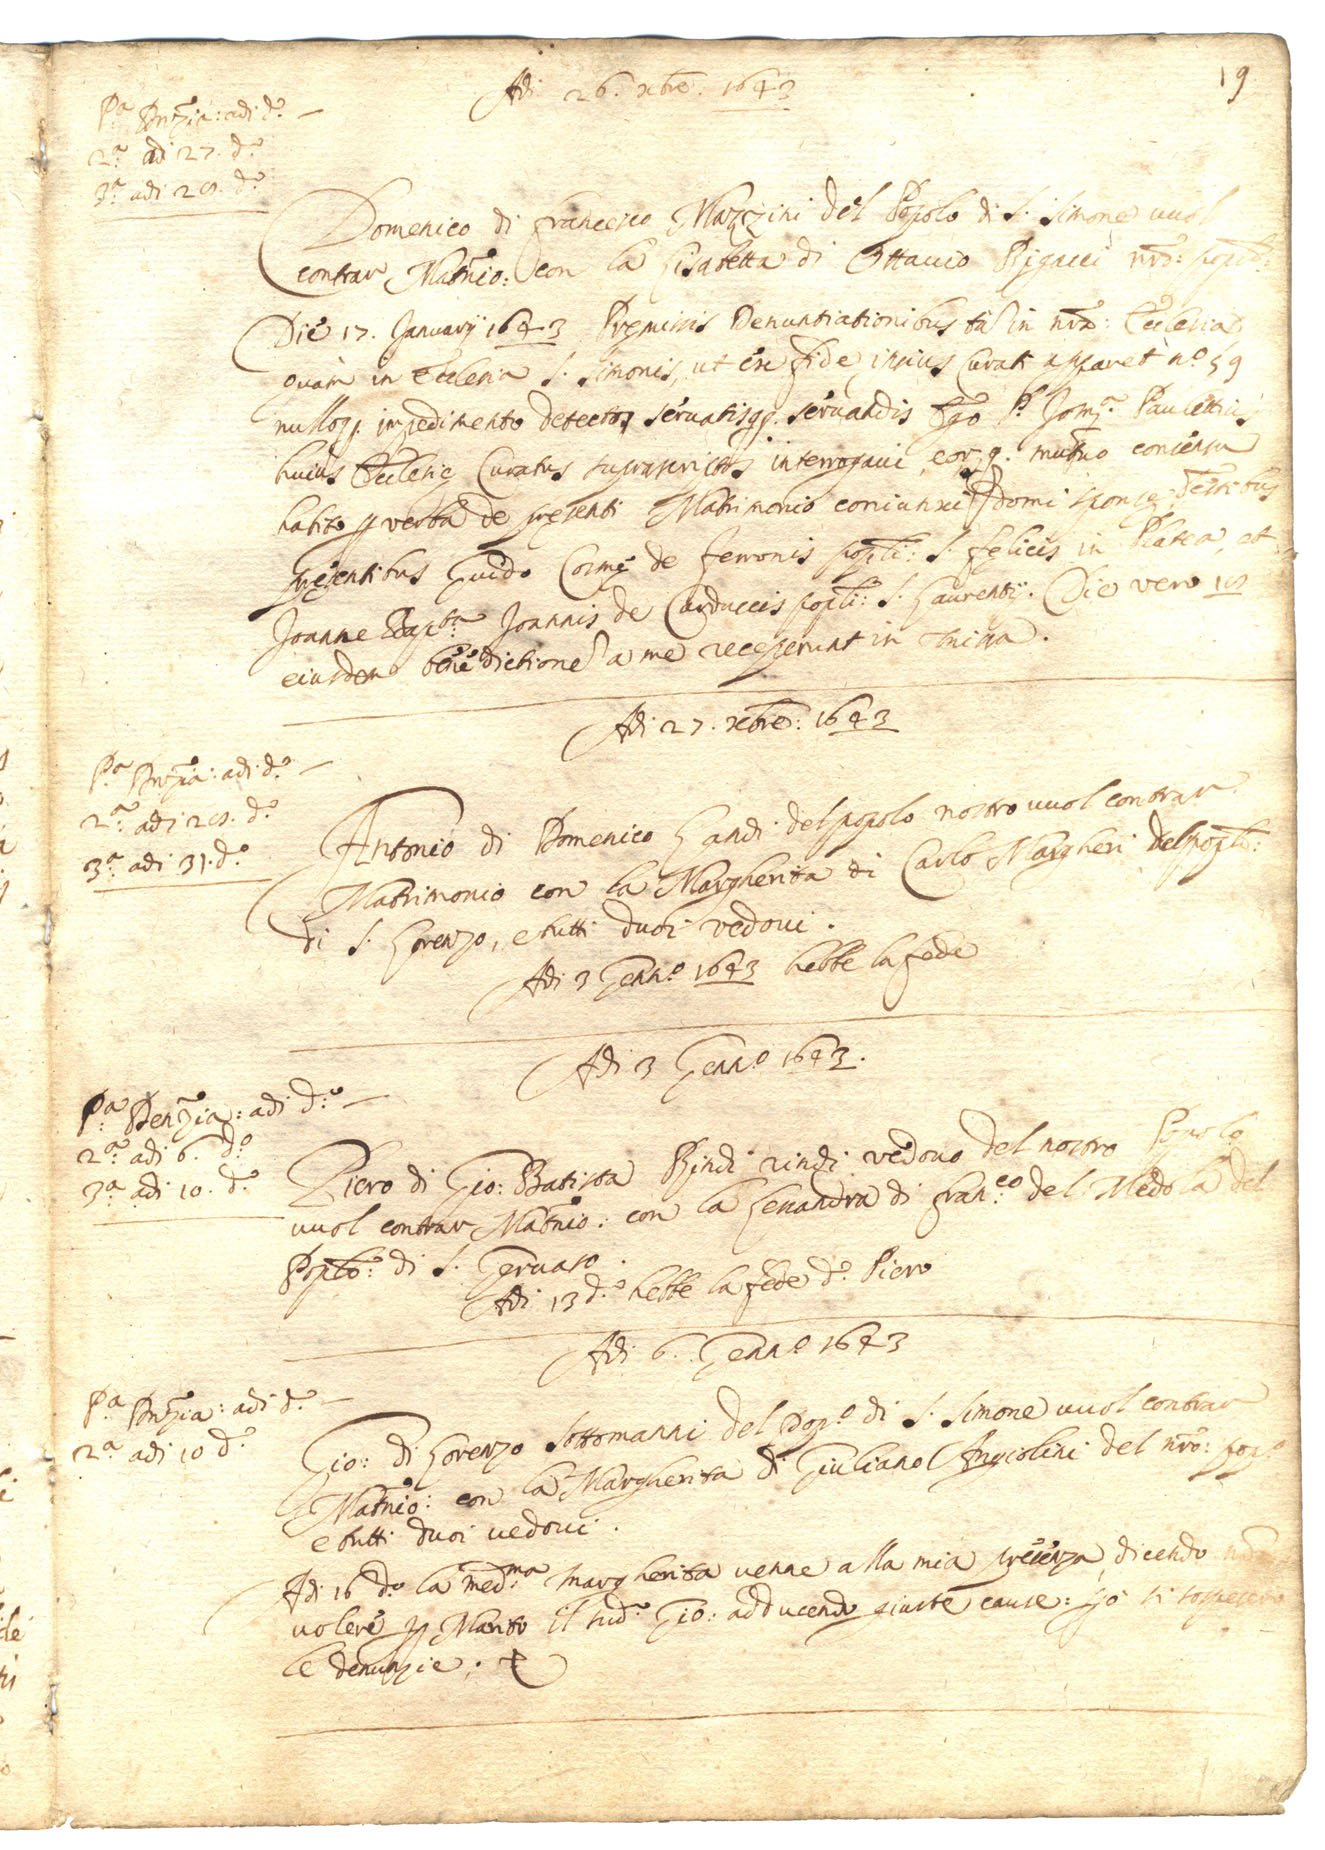 19
Adi 26. xbre. 1643
Pa. Dnzia: adi do.
2a. adi 27. do.
3a. adi 28. do.
Domenico di francesco Mazzini del Popolo di S. Simone vuol
contrar Matrio: con la Lisabetta di Ottavio Bigacci nro: popolo:
Die 17. Januarij 1643 Premissis Denuntiationibus tā in nra: Ecclesia
quam in Ecclesia S. Simonis, ut ex fide ipsius Curati apparet no 59
nulloq. impedimento detecto, servatisq. servandis Ego P.
huius Ecclesie Curatus suprascriptos interrogavi, eorq. mutuo consensu
habito p verba de presenti Matrimonio coniunxi domi sponse Testibus
presentibus Guido Cosme de ferronis popli: S. felicis in Platea, et
Joanne Bapta. Joannis de Carduccis popli: S. Laurentij. Die vero 18
eiusdem benedictione a me receperunt in missa.
Adi 27. xbre: 1643
Pa. Dnzia: adi do.
2a. adi 28. do.
3a. adi 31. do.
Antonio di Domenico Landi del popolo nostro vuol contrar
Matrimonio con la Margherita di Carlo Margheri del poplo:
di S. Lorenzo, e tutti duoi vedovi.
Adi 3 Genno. 1643 hebbe la fede
Adi 3 Genno. 1643.
Pa. Denzia: adi do.
2a. adi 6. do.
3a. adi 10. do.
Piero di Gio: Batista Bindi vedovo del nostro Popolo
vuol contrar Matrio: con la Lessandra di Fran.co del Medola del
Poplo: di S. Gervaso.
Adi 13 do. hebbe la fede do. Piero
Adi 6. Genno. 1643
Pa. Dnzia: adi do.
2a. adi 10 do.
Gio: di Lorenzo Sottomanni del Popo. di S. Simone vuol contrar
Matrio: con la Margherita di Giuliano del nro: popo.
e tutti duoi vedovi.
Adi 16 do. la medma. Margherita venne alla mia presenza, dicendo
volere p Marito il sud. Gio: adducendo giuste cause: si sospesero
le denunzie.